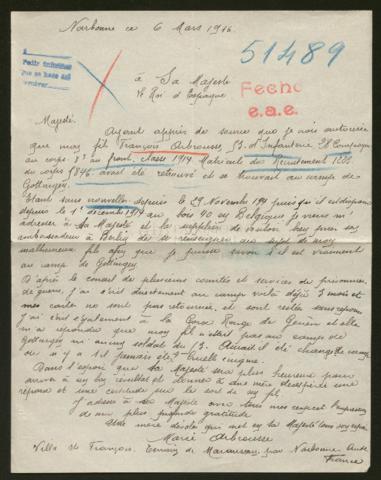 Narbonne ce 6 Mars 1916.
51489
à Sa Majesté
le Roi d'Espagne
Fecho
e.a.e.
Majesté.
Ayant appris de source que je crois autorisée
que mon fils François Arbrousse, 53. d'Infanterie, 28 Compagnie
au corps 8° au front, classe 1914 Matricule du Recrutement 1288.
du corps 8946, avait été retrouvé et se trouvait au camp de
Gottingen.
Etant sans nouvelles depuis le 29 Novembre 1914 puisqu'il est disparu
depuis le 1er décembre 1914 au bois 40 en Belgique je viens m'
adresser à Sa Majesté et la supplier de vouloir bien par son
ambassadeur à Berlin de se renseigner au sujet de mon
malheureux fils afin que je puisse savoir s'il est vraiment
au camp de Gottingen.
D'après le conseil de plusieurs comités et services de prisonniers
de guerre, j'ai écrit directement au camp voilà déjà 3 mois et
mes cartes ne sont pas retournées, et sont restées sans réponse
J'ai écrit également à la Croix Rouge de Genève et elle
m'a répondu que mon fils n'était pas au camp de
Gottingen ni aucun soldat du 53. Aurait il été changé de camp
ou n'y a t il jamais été? Cruelle énigme.
Dans l'espoir que Sa Majesté sera plus heureuse pour
arriver à un bon résultat et donner à une mère désespérée une
réponse et une certitude sur le sort de son fils
J'adresse à Sa Majesté avec tous mes respects l'expression
de ma plus profonde gratitude
Une mère désolée qui met en Sa Majesté tout son espoir
Marie Arbrousse
Villa St François, Terrains de par Narbonne Aude
France